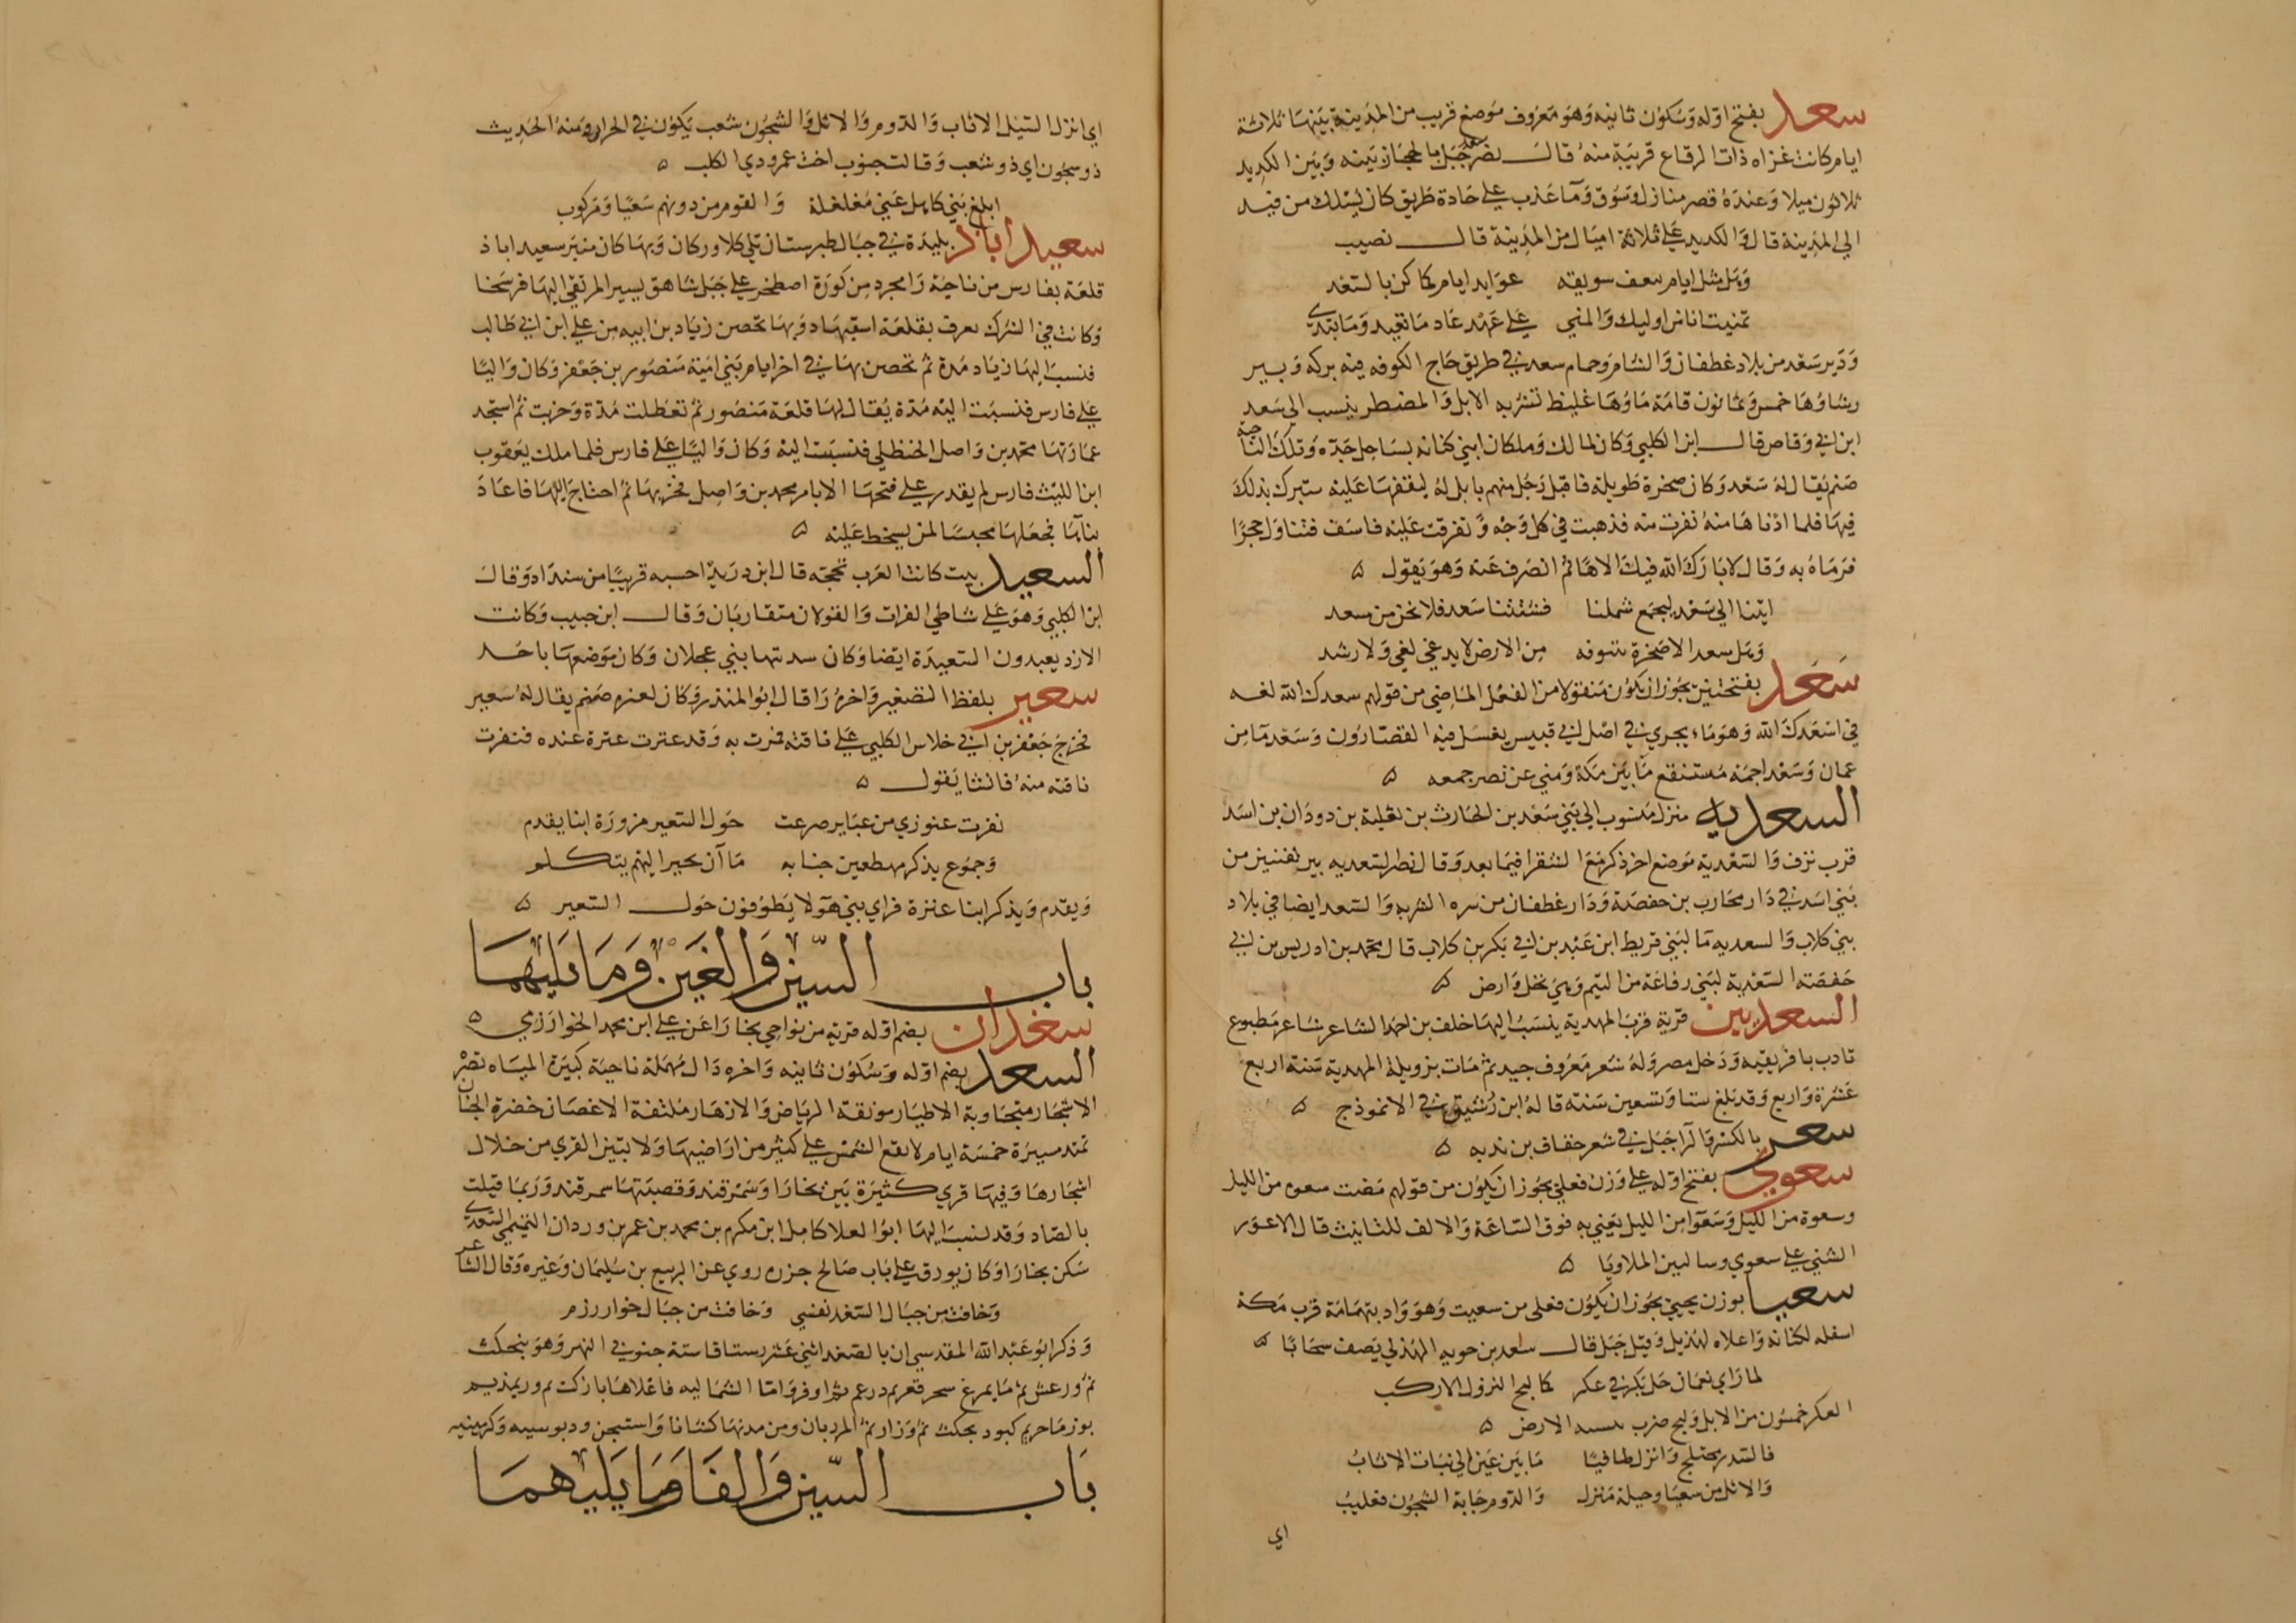 سعد بفتح اوله وسكون ثانيه وهو معروف موضع قريب من المدينة بينهما ثلاثة
ايام كانت غزاه ذات الرقاع قريبة منه قال نصر سعد جبل بالحجاز بينه وبين الكديد
ثلاثون ميلا وعنده قصر ومنازل وسوق وماء عذب على جادة طريق كان يسلك من فيد
الى المدينة قال والكديد على ثلاثة اميال من المدينة قال نصيب
وهل مثل ايام بنعف سويقه عوايد ايام كما كن بالسعد
تمنيت انا من اوليك والمنى على عهد عاد ما نعيد وما نبتدي
ودير سعد من بلاد غطفان والشام وحمام سعد في طريق حاج الكوفه فيه بركه وبير
رشاوها خمس وثمانون قامة ماوها غليظ تشربه الابل والمضطر ينسب الى سعد
ابن ابي وقاص قال ابن الكلبي وكان لمالك وملكان ابني كنانه بساحل جده وتلك الناحية
صنم يقال له سعد وكان صخرة طويلة فاقبل رجل منهم بابل له ليقفها عليه يتبرك بذلك
فيها فلما ادناها منه نفرت منه فذهبت في كل وجه وتفرقت عليه فاسف فتناول حجرا
فرماه به وقال لا بارك الله فيك الاها ثم انصرف عنه وهو يقول ه
اتينا الى سعد ليجمع شملنا فشتتنا سعد فلا نحن من سعد
وهل سعد الا صخرة بتنوفه من الارض لا يدعى لغي ولا رشد
سعد بفتحتين يجوز ان يكون منقولا من الفعل الماضي من قولهم سعدك الله لغه
في اسعدك الله وهو ماء يجري في اصل ابي قبيس يغسل فيه القصارون وسعد ما من
عمان وسعد اجمه مستنقع ما بين مكة ومنى عن نصر جمعه ه
السعديه منزل منسوب الى بني سعد بن الحارث بن ثعلبة بن دودان بن اسد
قرب نزف والسعدية موضع اخر ذكر مع الشقرا فيما بعد وقال نصر السعديه بير لفنين من
بني اسد في دار محارب بن حفصة ودار غطفان من سره الشربه والسعد ايضا في بلاد
بني كلاب والسعديه ما لبني قريط ابن عبد بن ابي بكر بن كلاب قال محمد بن ادريس بن ابي
حفصة السعدية لبني رفاعة من التيم وهي نخل وارض ه
السعديين قرية قرب المهدية ينسب اليها خلف بن احمد الشاعر شاعر مطبوع
تادب بافريقيه ودخل مصر وله شعر معروف جيد ثم مات بزويلة المهدية سنة اربع
عشرة واربع وقد بلغ ستا وتسعين سنه قاله ابن رشيق في الانموذج ه
سعر بالكسر والرا جبل في شعر خفاف بن ندبه ه
سعوي بفتح اوله على وزن فعلى يجوز ان يكون من قولهم مضت سعوه من الليل
وسعوة من الليل وسعوا من الليل يعني به فوق الساعة والالف للتانيث قال الاعور
الشني على سعوي وسالبين الملاويا ه
سعيا بوزن يحيى يجوز ان يكون فعلى من سعيت وهو واد بتهامة قرب مكة
اسفله لكنانه واعلاه لهذيل وقيل جبل قال ساعد بن جويه الهذلي يصف سحابا ه
لما راى نعمان حل بكرفي عكر كما لبج النزول الاركب
العكر خمسون من الابل ولبج ضرب بنفسه الارض ه
فالسدر مختلج وانزل طافيا ما بين عين الى نبات الاثاب
والاثل من سعيا وحيلة منزل والدوم جابه الشجون فعليب
اي
اي انزل السيل الاثاب والدوم والاثل والشجون شعب يكون في الحرار ومنه الحديث
ذو سجون اي ذو شعب وقالت جنوب اخت عمرو ذي الكلب ه
ابلغ بني كاهل عني مغلغلة والقوم من دونهم سعيا ومركوب
سعيد اباذ بليدة في جبال طبرستان تلي كلار وركان وبها كان منبر سعيد اباذ
قلعة بفارس من ناحية رامجرد من كورة اصطخر على جبل شاهق يسير المرتقي اليها فرسخا
وكانت في الشرك تعرف بقلعة اسفيباد وبها تحصن زياد بن ابيه من علي ابن ابي طالب
فنسب اليها زياد مدة ثم تحصن بها في اخر ايام بني امية منصور بن جعفر وكان واليا
على فارس فنسبت اليه مدة يقال لها قلعة منصور ثم تعطلت مدة وخربت ثم استجد
عمارتها محمد بن واصل الحنظلي فنسبت اليه وكان واليا على فارس فلما ملك يعقوب
ابن الليث فارس لم يقدر على فتحها الا بامر محمد بن واصل فخربها ثم احتاج اليها فاعاد
بناها فجعلها محبسا لمن يسخط عليه ه
السعيد بيت كانت العرب تحجه قال ابن دريد احسبه قريبا من سنداد وقال
ابن الكلبي وهو على شاطي الفرات والقولان متقاربان وقال ابن حبيب وكانت
الازد يعبدون السعيدة ايضا وكان سدنتها بني عجلان وكان موضعها باحد
سعير بلفظ التصغير واخره را قال ابو المنذر وكان لعنزه صنم يقال له سعير
فخرج جعفر بن ابي خلاس الكلبي على ناقته فمرت به وقد عترت عترة عنده فنفرت
ناقته منه فانشا يقول ه
نفرت عنوزي من عباير صرعت حول السعير مزورة ابنا يقدم
وجموع يذكر مهطعين جنابه ما ان يحير اليهم بتكلم
ويقدم ويذكر ابنا عنزة فراى بني هولا يطوفون حول السعير ه
باب السين والغين وما يليهما
سغدان بضم اوله قرية من نواحي بخارا عن علي ابن محمد الخوارزمي ه
السعد بضم اوله وسكون ثانيه واخره دال مهملة ناحية كثيرة المياه نضرة
الاشجار متجاوبة الاطيار مونقة الرياض والازهار ملتفة الاغصان خضرة الجنان
تمتد مسيرة خمسة ايام لا تقع الشمس على كثير من اراضيها ولا تبين القرى من خلال
اشجارها وفيها قرى كثيرة بين بخارا وسمرقند وقصبتها سمرقند وربما قيلت
بالصاد وقد نسب اليها ابو العلا كامل ابن مكرم بن محمد بن عمر بن وردان التميمي السعدي
سكن بخارا وكان يورق على باب صالح جزره روى عن الربيع بن سليمان وغيره وقال الشاعر
وخافت من جبال السغد نفسي وخافت من جبال خوارزم
وذكر ابو عبد الله المقدسي ان بالصغد اثني عشر رستاقا ستة جنوبي النهر وهو بنجكث
باب السين والفا وما يليهما